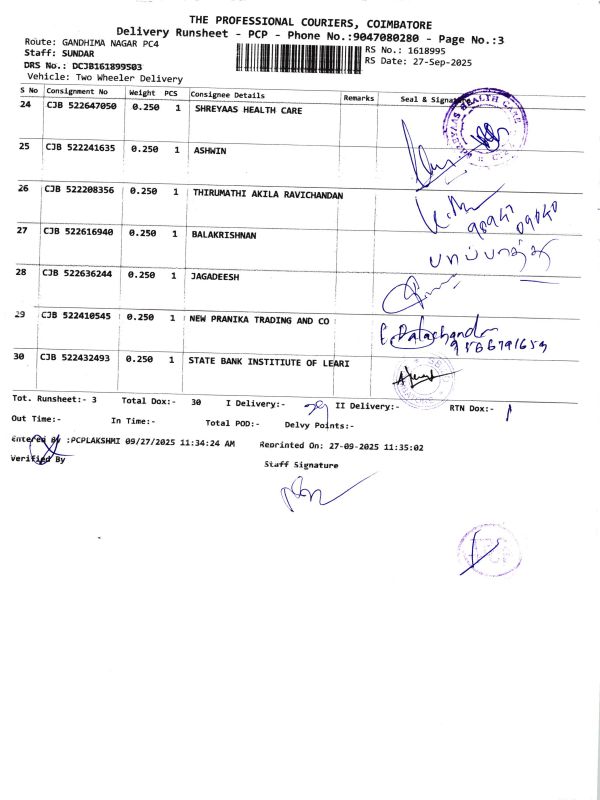 THE PROFESSIONAL COURIERS, COIMBATORE
Delivery Runsheet - PCP - Phone No.:9047080280 - Page No.:3
Route: GANDHIMA NAGAR PC4 RS No.: 1618995
Staff: SUNDAR RS Date: 27-Sep-2025
DRS No.: DCJB161899503
Vehicle: Two Wheeler Delivery
S No Consignment No Weight PCS Consignee Details Remarks Seal & Signature
24 CJB 522647050 0.250 1 SHREYAAS HEALTH CARE
SHREYAAS HEALTH CARE
25 CJB 522241635 0.250 1 ASHWIN
26 CJB 522208356 0.250 1 THIRUMATHI AKILA RAVICHANDAN
27 CJB 522616940 0.250 1 BALAKRISHNAN
28 CJB 522636244 0.250 1 JAGADEESH
29 CJB 522410545 0.250 1 NEW PRANIKA TRADING AND CO
30 CJB 522432493 0.250 1 STATE BANK INSTITIUTE OF LEARI
Tot. Runsheet:- 3 Total Dox:- 30 I Delivery:- 29 II Delivery:- RTN Dox:- 1
Out Time:- In Time:- Total POD:- Delvy Points:-
Entered By :PCPLAKSHMI 09/27/2025 11:34:24 AM Reprinted On: 27-09-2025 11:35:02
Verified By Staff Signature